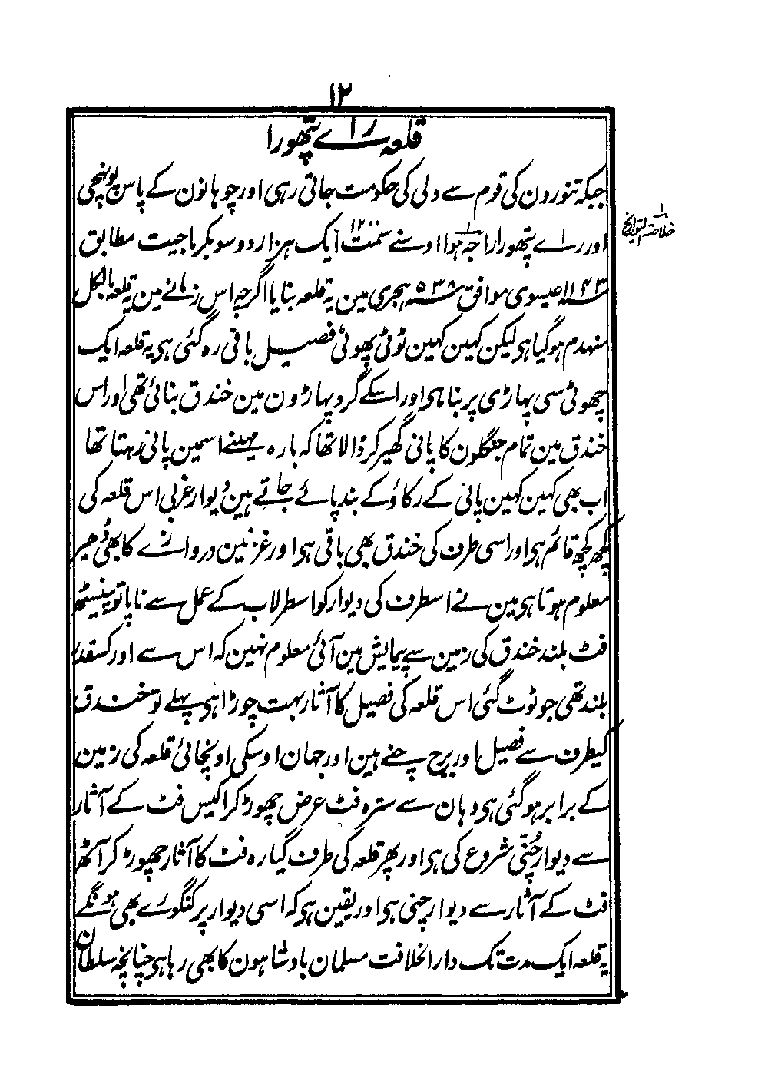 ۱۲
قلعہ راے پتھورا
جبکہ تنورون کی قوم سے دلی کی حکومت جاتی رہی اور چوہانون کے پاس پونہچی
اور راے پتھورا راجہ ہوا اوسنے سمت ۱۲۰۰ ایک ہزار دو سو بکرماجیت مطابق
خلاصۃ التواریخ
۱۱۴۳ عیسوی موافق ۵۳۸ ہجری مین یہ قلعہ بنایا اگرچہ اس زمانے مین یہ قلعہ بالکل
منہدم ہوگیا ہی لیکن کہین کہین ٹوٹی پھوٹی فصیل باقی رہ گئی ہی یہ قلعہ ایک
چھوٹی سی پہاڑی پر بنا ہی اور اسکے گرد پہاڑون مین خندق بنائی تھی اور اس
خندق مین تمام جنگلون کا پانی گھیر کر ڈالا تھا کہ بارہ مہینے اسمین پانی رہتا تھا
اب بھی کہین کہین پانی کے رکاؤ کے بند پائے جاتے ہین دیوار غربی اس قلعہ کی
کچھ کچھ قائم ہی اور اسی طرف کی خندق بھی باقی ہی اور غزنین دروازے کا بھی ڈھیر
معلوم ہوتا ہی مین نے اسطرف کی دیوار کو اسطرلاب کے عمل سے ناپا تو پینسٹھ
فٹ بلند خندق کی زمین سے پیمایش مین آئی معلوم نہین کہ اس سے اور کسقدر
بلند تھی جو ٹوٹ گئی اس قلعہ کی فصیل کا آثار بہت چوڑا ہی پہلے تو خندق
کیطرف سے فصیل اور برج چنے ہین اور جہان اوسکی اونچائی قلعہ کی زمین
کے برابر ہوگئی ہی وہان سے سترہ فٹ عرض چھوڑ کر اکیس فٹ کے آثار
سے دیوار چننی شروع کی ہی اور پھر قلعہ کی طرف گیارہ فٹ کا آثار چھوڑ کر آٹھ
فٹ کے آثار سے دیوار چنی ہی اور یقین ہی کہ اسی دیوار پر کنگورے بھی ہونگے
یہ قلعہ ایک مدت تک دارالخلافت مسلمان بادشاہون کا بھی رہا ہی چنانچہ سلطان